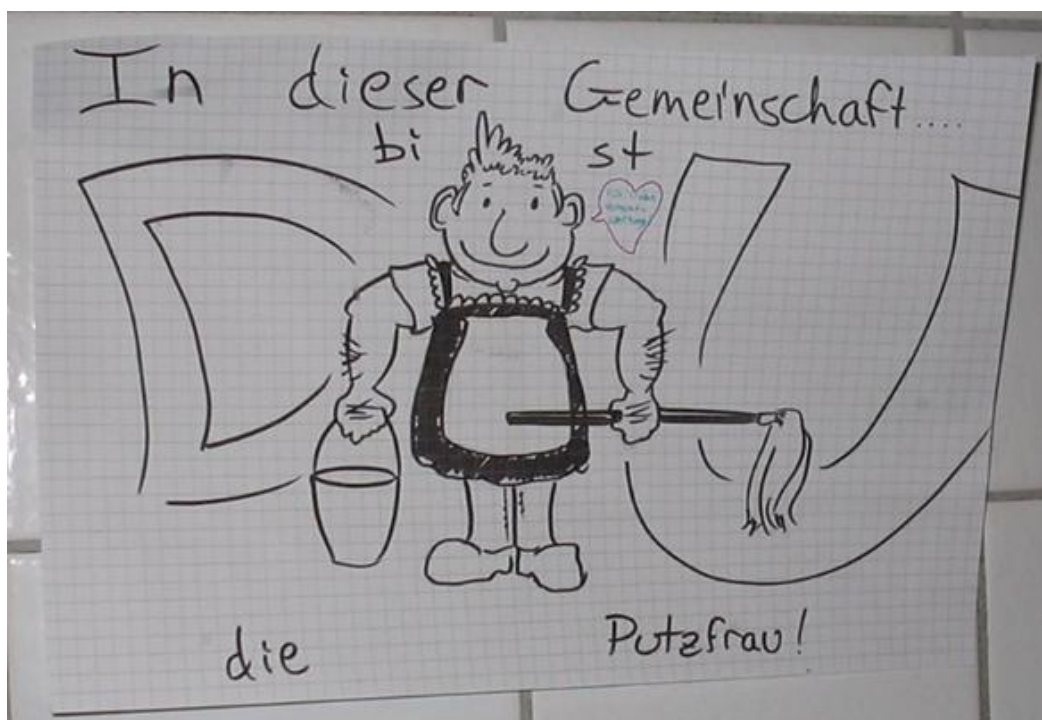 In dieser Gemeinschaft....
bist
DU
die Putzfrau!